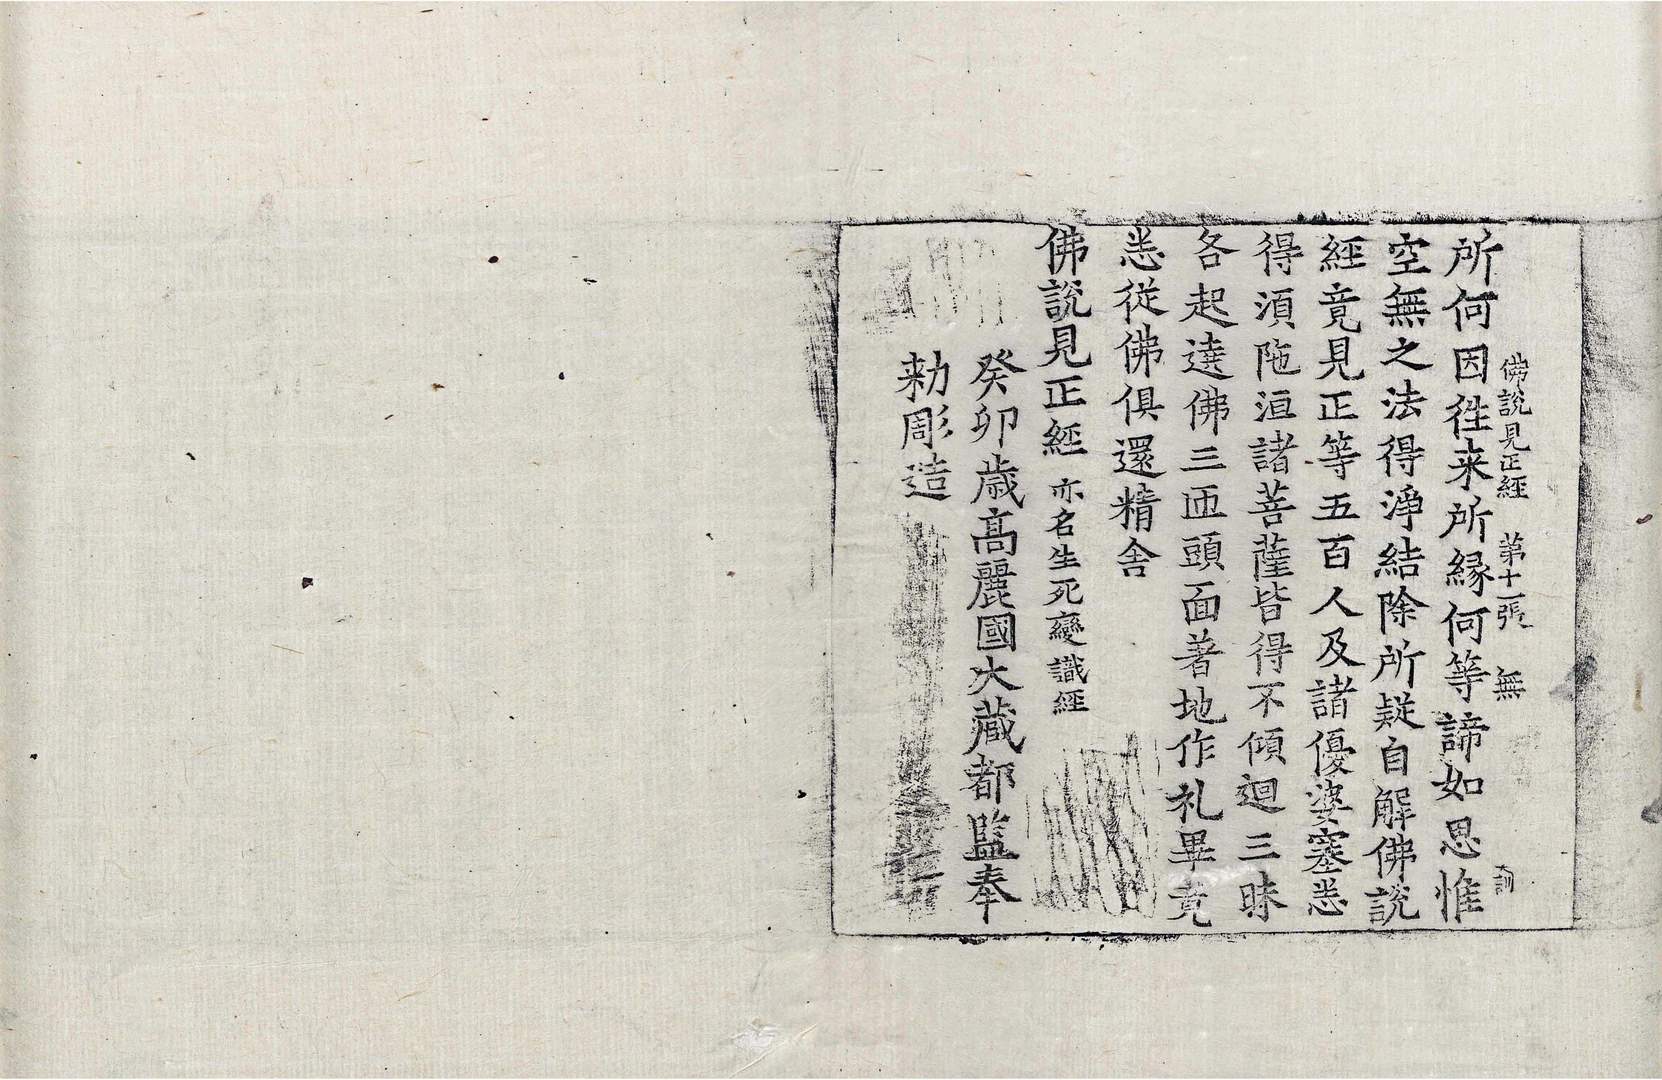 佛說見正經 第十一張 無
所何因徃来所縁何等諦如思惟
空無之法得淨結除所疑自解佛說
經竟見正等五百人及諸優婆塞悉
得湏陁洹諸菩薩皆得不傾迴三昧
各起遶佛三匝頭面著地作礼畢竟
悉從佛俱還精舍
佛說見正經 亦名生死變識經
癸卯歲高麗國大藏都監奉
勑彫造